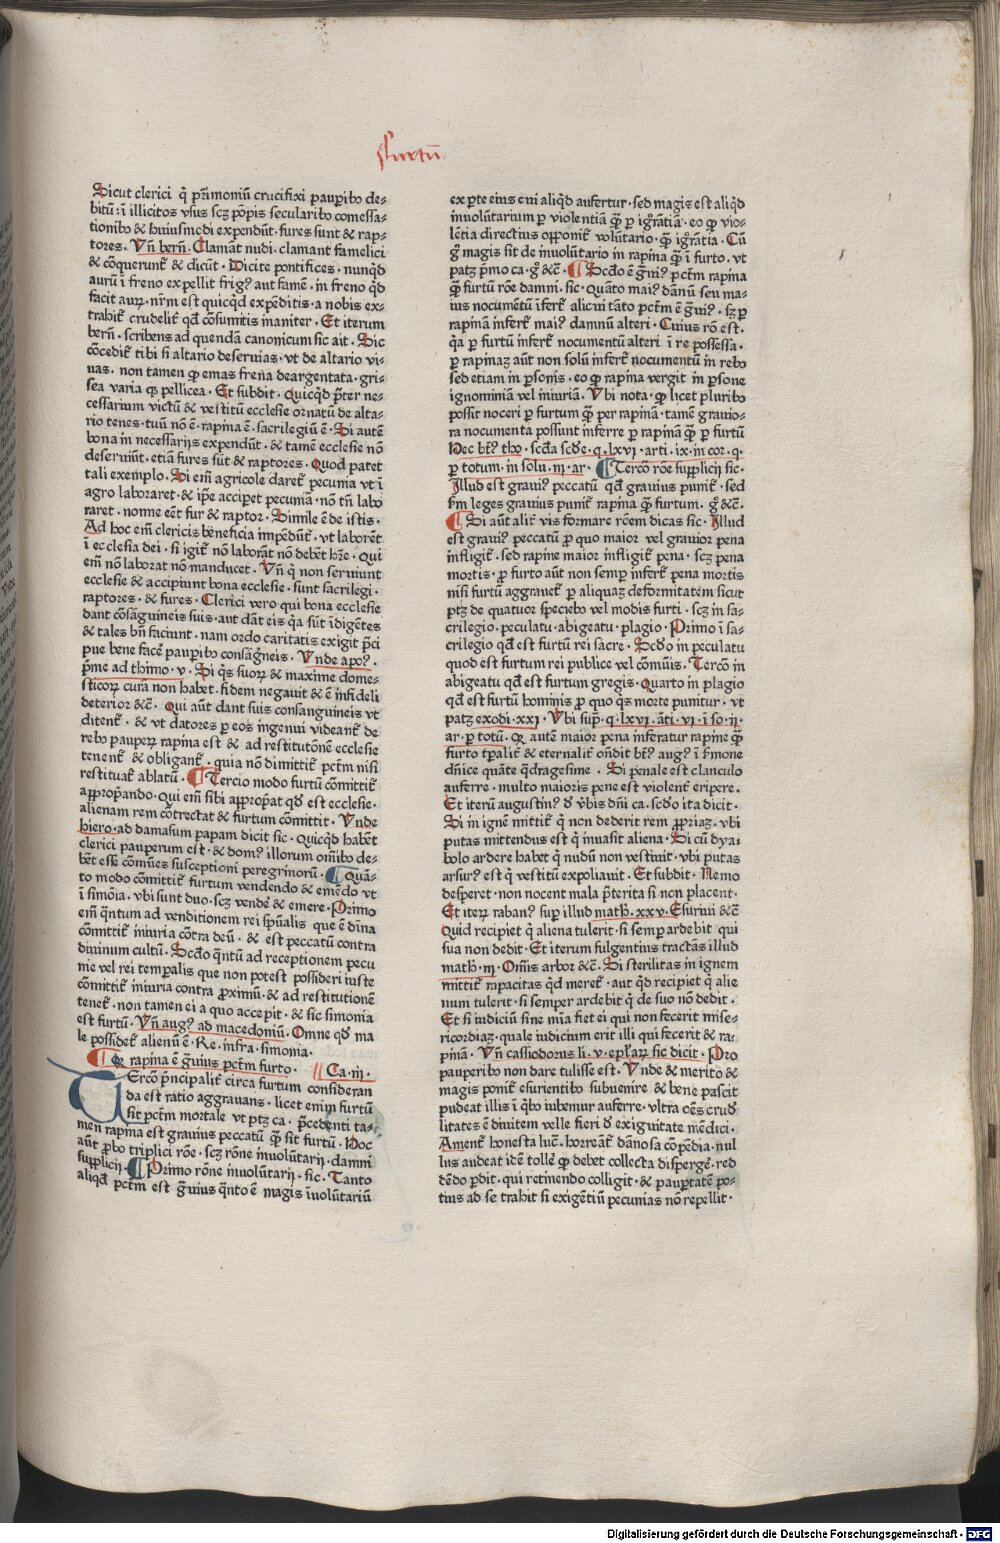 Furtū
Sicut clerici q̄ p̄rimoniū crucifixi paupibꝰ de⸗
bitū: ī illicitos vsus scꝫ pōpis secularibꝰ comessa⸗
tionibꝰ & huiusmodi expendūt· fures sunt & rap⸗
tores· Vn̄ bern̄· Clamāt nudi· clamant famelici
& cōquerunt̄ & dicūt· Dicite pontifices· nunqd̄
aurū ī freno expellit frigꝰ aut famē· in freno qd̄
facit auꝝ· nr̄m est quicqd̄ expēditis· a nobis ex⸗
trahit̄ crudelit̄ qd̄ cōsumitis inaniter· Et iterum
bern̄· scribens ad quendā canonicum sic ait· Sic
cōcedit̄ tibi si altario deseruias· vt de altario vi⸗
uas· non tamen ꝙ emas frena deargentata· gri⸗
sea varia qꝫ pellicea· Et subdit· quicqd̄ p̄ter ne⸗
cessarium victū & vestitū ecclesie ornatū de alta⸗
rio tenes· tuū nō ē· rapina ē· sacrilegiū ē· Si autē
bona in necessarijs expendūt· & tamē ecclesie nō
deseruiūt· etiā fures sūt & raptores· Quod patet
tali exemplo· Si em̄ agricole daret̄ pecunia vt ī
agro laboraret· & ip̄e accipet pecuniā· nō tn̄ labo
raret· nonne eēt fur & raptor· Simile ē de istis·
Ad hoc em̄ clericis beneficia impēdūt̄· vt laborēt
ī ecclesia dei· si igit̄ nō laborāt nō debēt hr̄e· Qui
em̄ nō laborat nō manducet· Vn̄ q̄ non seruiunt
ecclesie & accipiunt bona ecclesie· sunt sacrilegi·
raptores· & fures· Clerici vero qui bona ecclesie
dant cōsāguineis suis· aut dāt eis qa sūt īdigētes
& tales bn̄ faciunt· nam ordo caritatis exigit p̄ci
pue bene facē paupibꝰ consāgneis· Vnde apoꝰ·
p̄me ad thimo·v· Si qs suoꝝ & maxime dome⸗
sticoꝝ curā non habet· fidem negauit & ē īfideli
deterior &c̄· Qui aūt dant suis consanguineis vt
ditent̄· & vt datores p eos ingenui videant̄ de
rebꝰ paupeꝝ rapina est & ad restitutōnē ecclesie
tenent̄ & obligant̄· quia nō dimittit̄ pctm̄ nisi
restituat̄ ablatū· ¶ Tercio modo furtū cōmittit̄
appropādo· Qui em̄ sibi appropat qd̄ est ecclesie·
alienam rem cōtrectat & furtum cōmittit· Vnde
hiero· ad damasum papam dicit sic· Quicqd̄ habēt
clerici pauperum est· & domꝰ illorum om̄ibꝰ de⸗
bēt esse cōmūes susceptioni peregrinorū· ¶ Quā⸗
to modo cōmittit̄ furtum vendendo & emēdo vt
ī simōia· vbi sunt duo· scꝫ vendē & emere· Primo
em̄ qntum ad venditionem rei spūalis que ē dīna
cōmittit̄ iniuria cōtra deū· & est peccatū contra
diuinum cultū· Scdo qntū ad receptionem pecu
nie vel rei temp̄alis que non potest possideri iuste
cōmittit̄ iniuria contra proximū· & ad restitutionē
tenet̄· non tamen ei a quo accepit· & sic simonia
est furtū· Vn̄ augꝰ ad macedoniū· Omne qd̄ ma
le possidet̄ alienū ē· Re·infra·simonia·
¶ Qꝫ rapina ē ḡuius pctm̄ furto· Ca·iij·
Tercō p̄ncipalit̄ circa furtum consideran
da est ratio aggrauans· licet enim furtū
sit pctm̄ mortale vt ptꝫ ca· p̄cedenti ta⸗
men rapina est grauius peccatū ꝙ̄ sit furtū· Hoc
aūt pbo triplici rōe· scꝫ rōne inuolūtarij· damni
supplicij· ¶ Primo rōne inuolūtarij· sic· Tanto
aliqd̄ pctm̄ est ḡuius qntō ē magis īuolūtariū
ex pte eius cui aliqd̄ aufertur· sed magis est aliqd̄
inuolūtarium p violentiā ꝙ̄ p igr̄atiā· eo ꝙ vio⸗
lētia directius opponit̄ volūtario· ꝙ̄ igr̄atia· Cū
ḡ magis sit de inuolūtario in rapina ꝙ̄ ī furto· vt
patꝫ p̄mo ca· ḡ &c̄· ¶ Scdo ē ḡuiꝰ pctm̄ rapina
ꝙ̄ furtū rōe damni· sic· Quāto maiꝰ dānū seu ma⸗
ius nocumētū īfert̄ alicui tāto pctm̄ ē ḡuiꝰ· sꝫ p
rapinā infert̄ maiꝰ damnū alteri· Cuius rō est·
qa p furtū īfert̄ nocumentū alteri ī re possessa·
p rapinaꝫ aūt non solū infert̄ nocumentū in rebꝰ
sed etiam in psonis· eo ꝙ rapina vergit in psone
ignominiā vel iniuriā· Vbi nota· ꝙ licet pluribꝰ
possit noceri p furtum ꝙ̄ per rapinā· tamē grauio⸗
ra nocumenta possunt inferre p rapinā ꝙ̄ p furtū
Hec bt̄ꝰ thoꝰ· scda scde·q·lxvj·arti·ix·in cor·q·
p totum·in solu·iij·ar· ¶ Tercō rōne supplicij sic·
Illud est grauiꝰ peccatū qd̄ grauius punit̄· sed
fm leges grauius punit̄ rapina ꝙ̄ furtum· ḡ &c̄·
¶ Si aūt alit̄ vis formare rōem dicas sic· Illud
est grauiꝰ peccatū p quo maior vel grauior pena
infligit̄· sed rapine maior infligit̄ pena· scꝫ pena
mortis· p furto aūt non semp infert̄ pena mortis
nisi furtū aggrauet̄ p aliquaꝫ deformitatem sicut
ptꝫ de quatuor speciebꝰ vel modis furti· scꝫ in sa⸗
crilegio· peculatu· abigeatu· plagio· Primo ī sa⸗
crilegio qd̄ est furtū rei sacre· Scdo in peculatu
quod est furtum rei publice vel cōmūis· Tercō in
abigeatu qd̄ est furtum gregis· Quarto in plagio
qd̄ est furtū hominis p quo qs morte punitur· vt
patꝫ exodi·xxj· Vbi sup̄·q·lxvj·ati·vj·ī so·ij·
ar·p totū· Qꝫ autē maior pena inferatur rapine ꝙ̄
furto tpalit̄ & eternalit̄ ondit bt̄ꝰ augꝰ ī s̄mone
dn̄ice quāte qdragesime· Si penale est clanculo
auferre· multo maioris pene est violent̄ eripere·
Et iterū augustinꝰ d̄ v̄bis dn̄i ca·scdo ita dicit·
Si in ignē mittit̄ q̄ non dederit rem ppriaꝫ· vbi
putas mittendus est q̄ inuasit aliena· Si cū dya⸗
bolo ardere habet q̄ nudū non vestiuit· vbi putas
arsurꝰ est q̄ vestitū expoliauit· Et subdit· Nemo
desperet· non nocent mala p̄terita si non placent·
Et iteꝝ rabanꝰ sup illud math·xxv·Esuriui &c̄
Quid recipiet q̄ aliena tulerit· si semp ardebit qui
sua non dedit· Et iterum fulgentius tractās illud
math·iij· Om̄is arbor &c̄· Si sterilitas in ignem
mittit̄ rapacitas qd̄ meret̄· aut qd̄ recipiet q̄ alie
num tulerit· si semper ardebit q̄ de suo nō dedit·
Et si iudiciū sine mīa fiet ei qui non fecerit mise⸗
ricordiaꝫ· quale iudicium erit illi qui fecerit & ra⸗
pinā· Vn̄ cassiodorus li·v·epl̄aꝝ sic dicit· Pro
pauperibꝰ non dare tulisse est· Vnde & merito &
magis ponit̄ esurientibꝰ subuenire & bene pascit
pudeat illis ī qbꝰ iubemur auferre· vltra oēs crud̄
litates ē diuitem velle fieri d̄ exiguitate mēdici·
Ament̄ honesta lucͣ· horreāt̄ dānosa cōpēdia· nul
lus audeat idē tollē ꝙ debet collecta dispergē· red
dēdo pdit· qui retinendo colligit· & paupertatē po⸗
tius ad se trahit si exigētiū pecunias nō repellit·
Digitalisierung gefördert durch die Deutsche Forschungsgemeinschaft - DFG